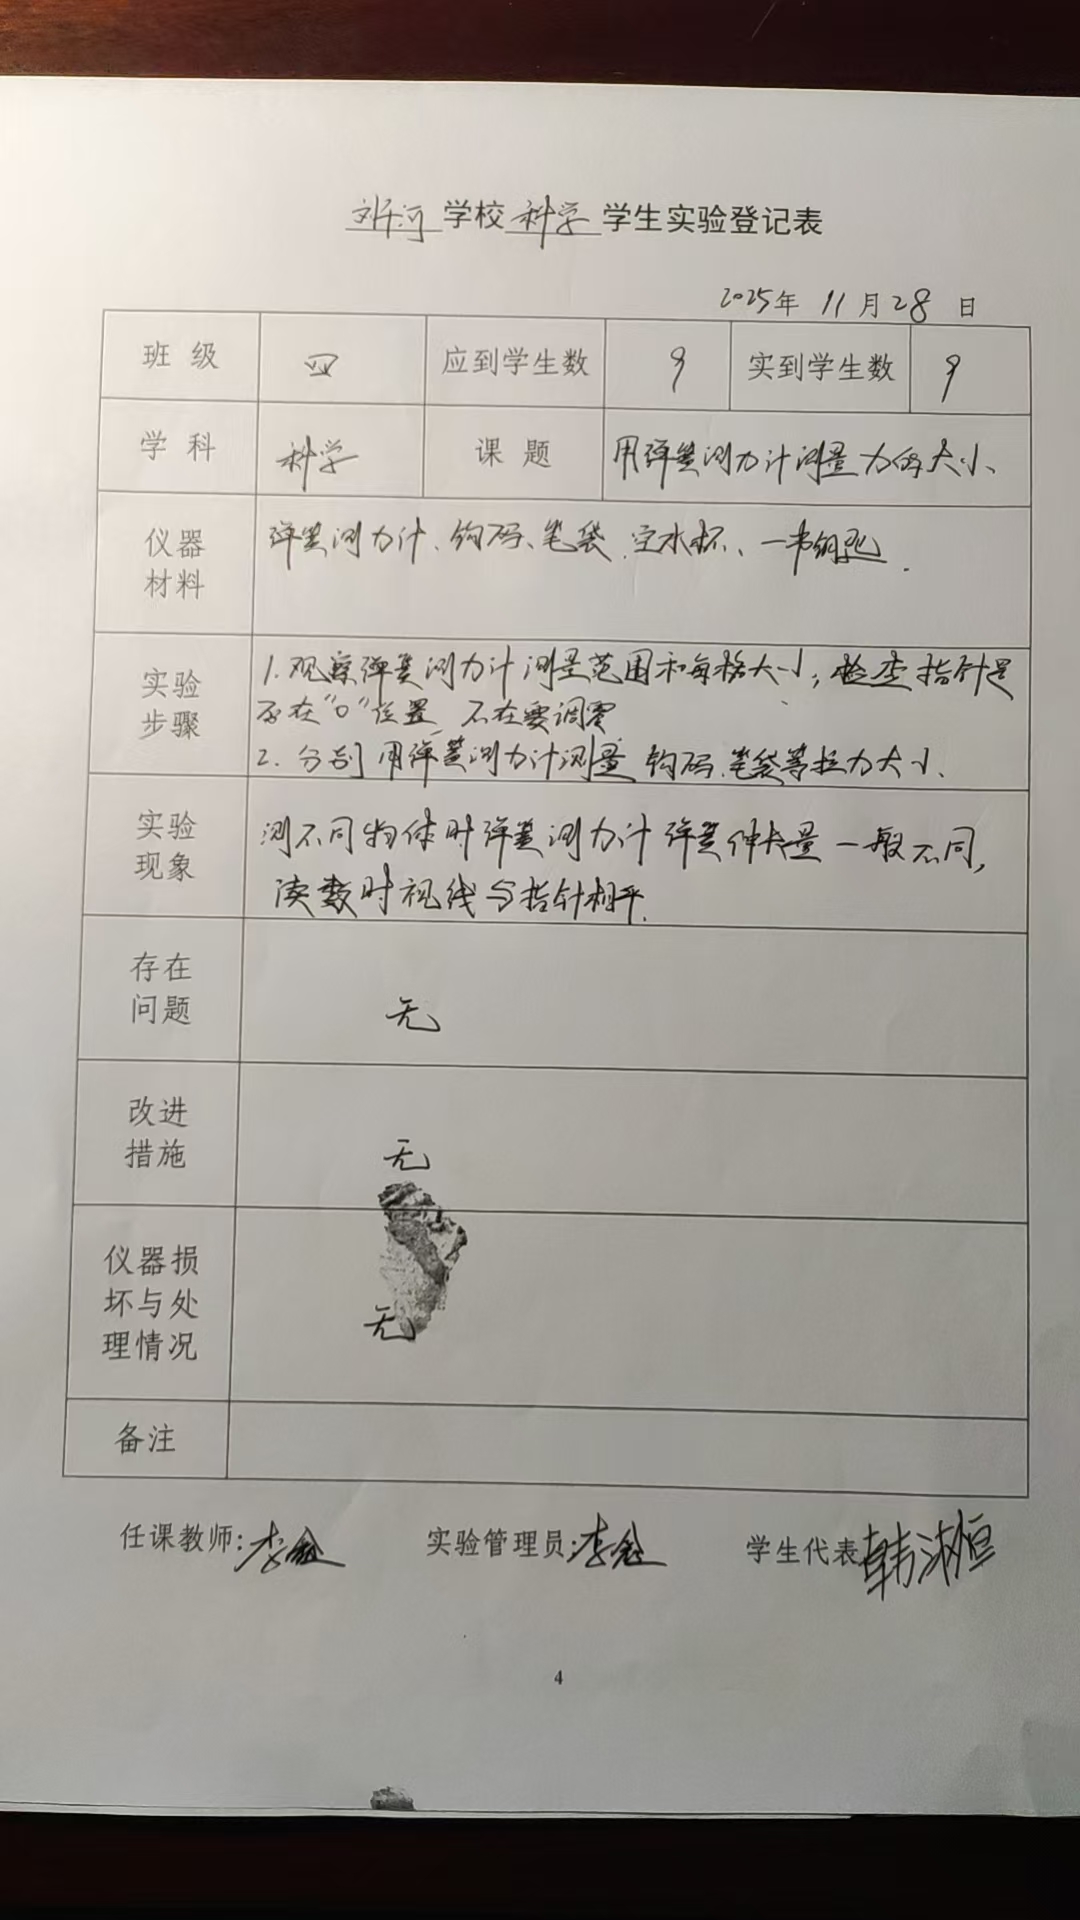 刘河 学校 科学 学生实验登记表
2025年 11月28日
班级 四 应到学生数 9 实到学生数 9
学科 科学 课题 用弹簧测力计测量力的大小
仪器材料 弹簧测力计、钩码、笔袋、空水杯、一串钥匙.
实验步骤 1.观察弹簧测力计测量范围和每格大小；检查指针是
否在“0”位置，不在要调零
2.分别用弹簧测力计测量钩码、笔袋等拉力大小.
实验现象 测不同物体时弹簧测力计弹簧伸长量一般不同，
读数时视线与指针相平.
存在问题 无
改进措施 无
仪器损坏与处理情况 无
备注
任课教师: 李 实验管理员: 李 学生代表 韩
4